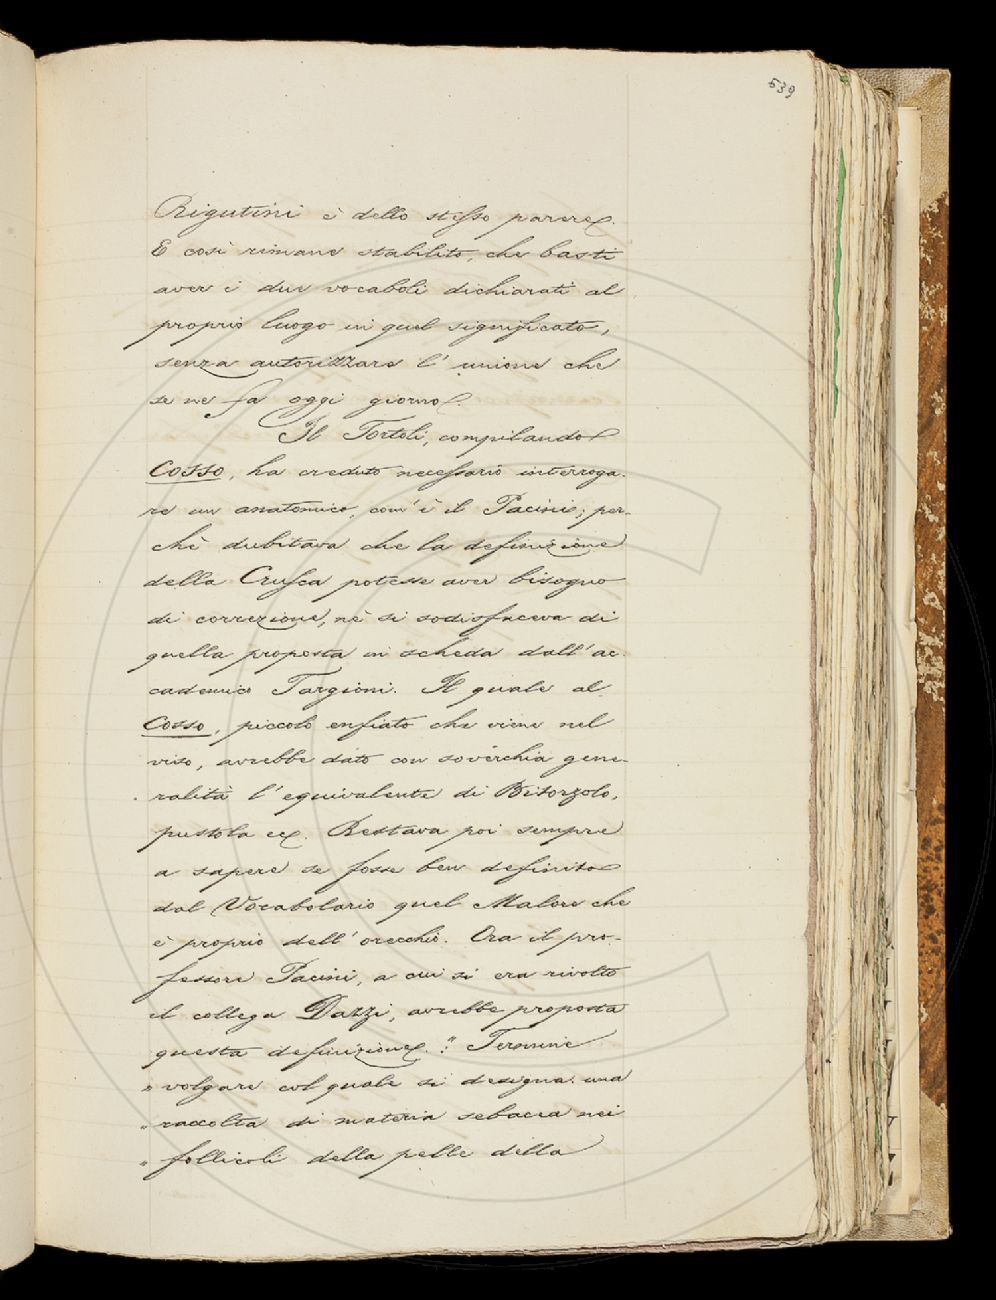 539
Rigutini è dello stesso parere.
E così rimane stabilito, che basti
aver i due vocaboli dichiarati al
proprio luogo in quel significato,
senza autorizzare l' unione che
se ne fa oggi giorno.
Il Tortoli, compilando
Cosso, ha creduto necessario interroga-
re un anatomico, com' è il Pacini; per-
chè dubitava che la definizione
della Crusca potesse aver bisogno
di correzione, nè si sodisfaceva di
quella proposta in scheda dall' ac-
cademico Targioni. Il quale al
Cosso, piccolo enfiato che viene nel
viso, avrebbe dato con soverchia gene-
ralità l' equivalente di Bitorzolo,
pustola ec. Restava poi sempre
a sapere se fosse ben definito
dal Vocabolario quel Malore che
è proprio dell' orecchio. Ora il pro-
fessore Pacini, a cui si era rivolto
il collega Dazzi, avrebbe proposta
questa definizione: " Termine
" volgare col quale si designa una
" raccolta di materia sebacea nei
" follicoli della pelle della